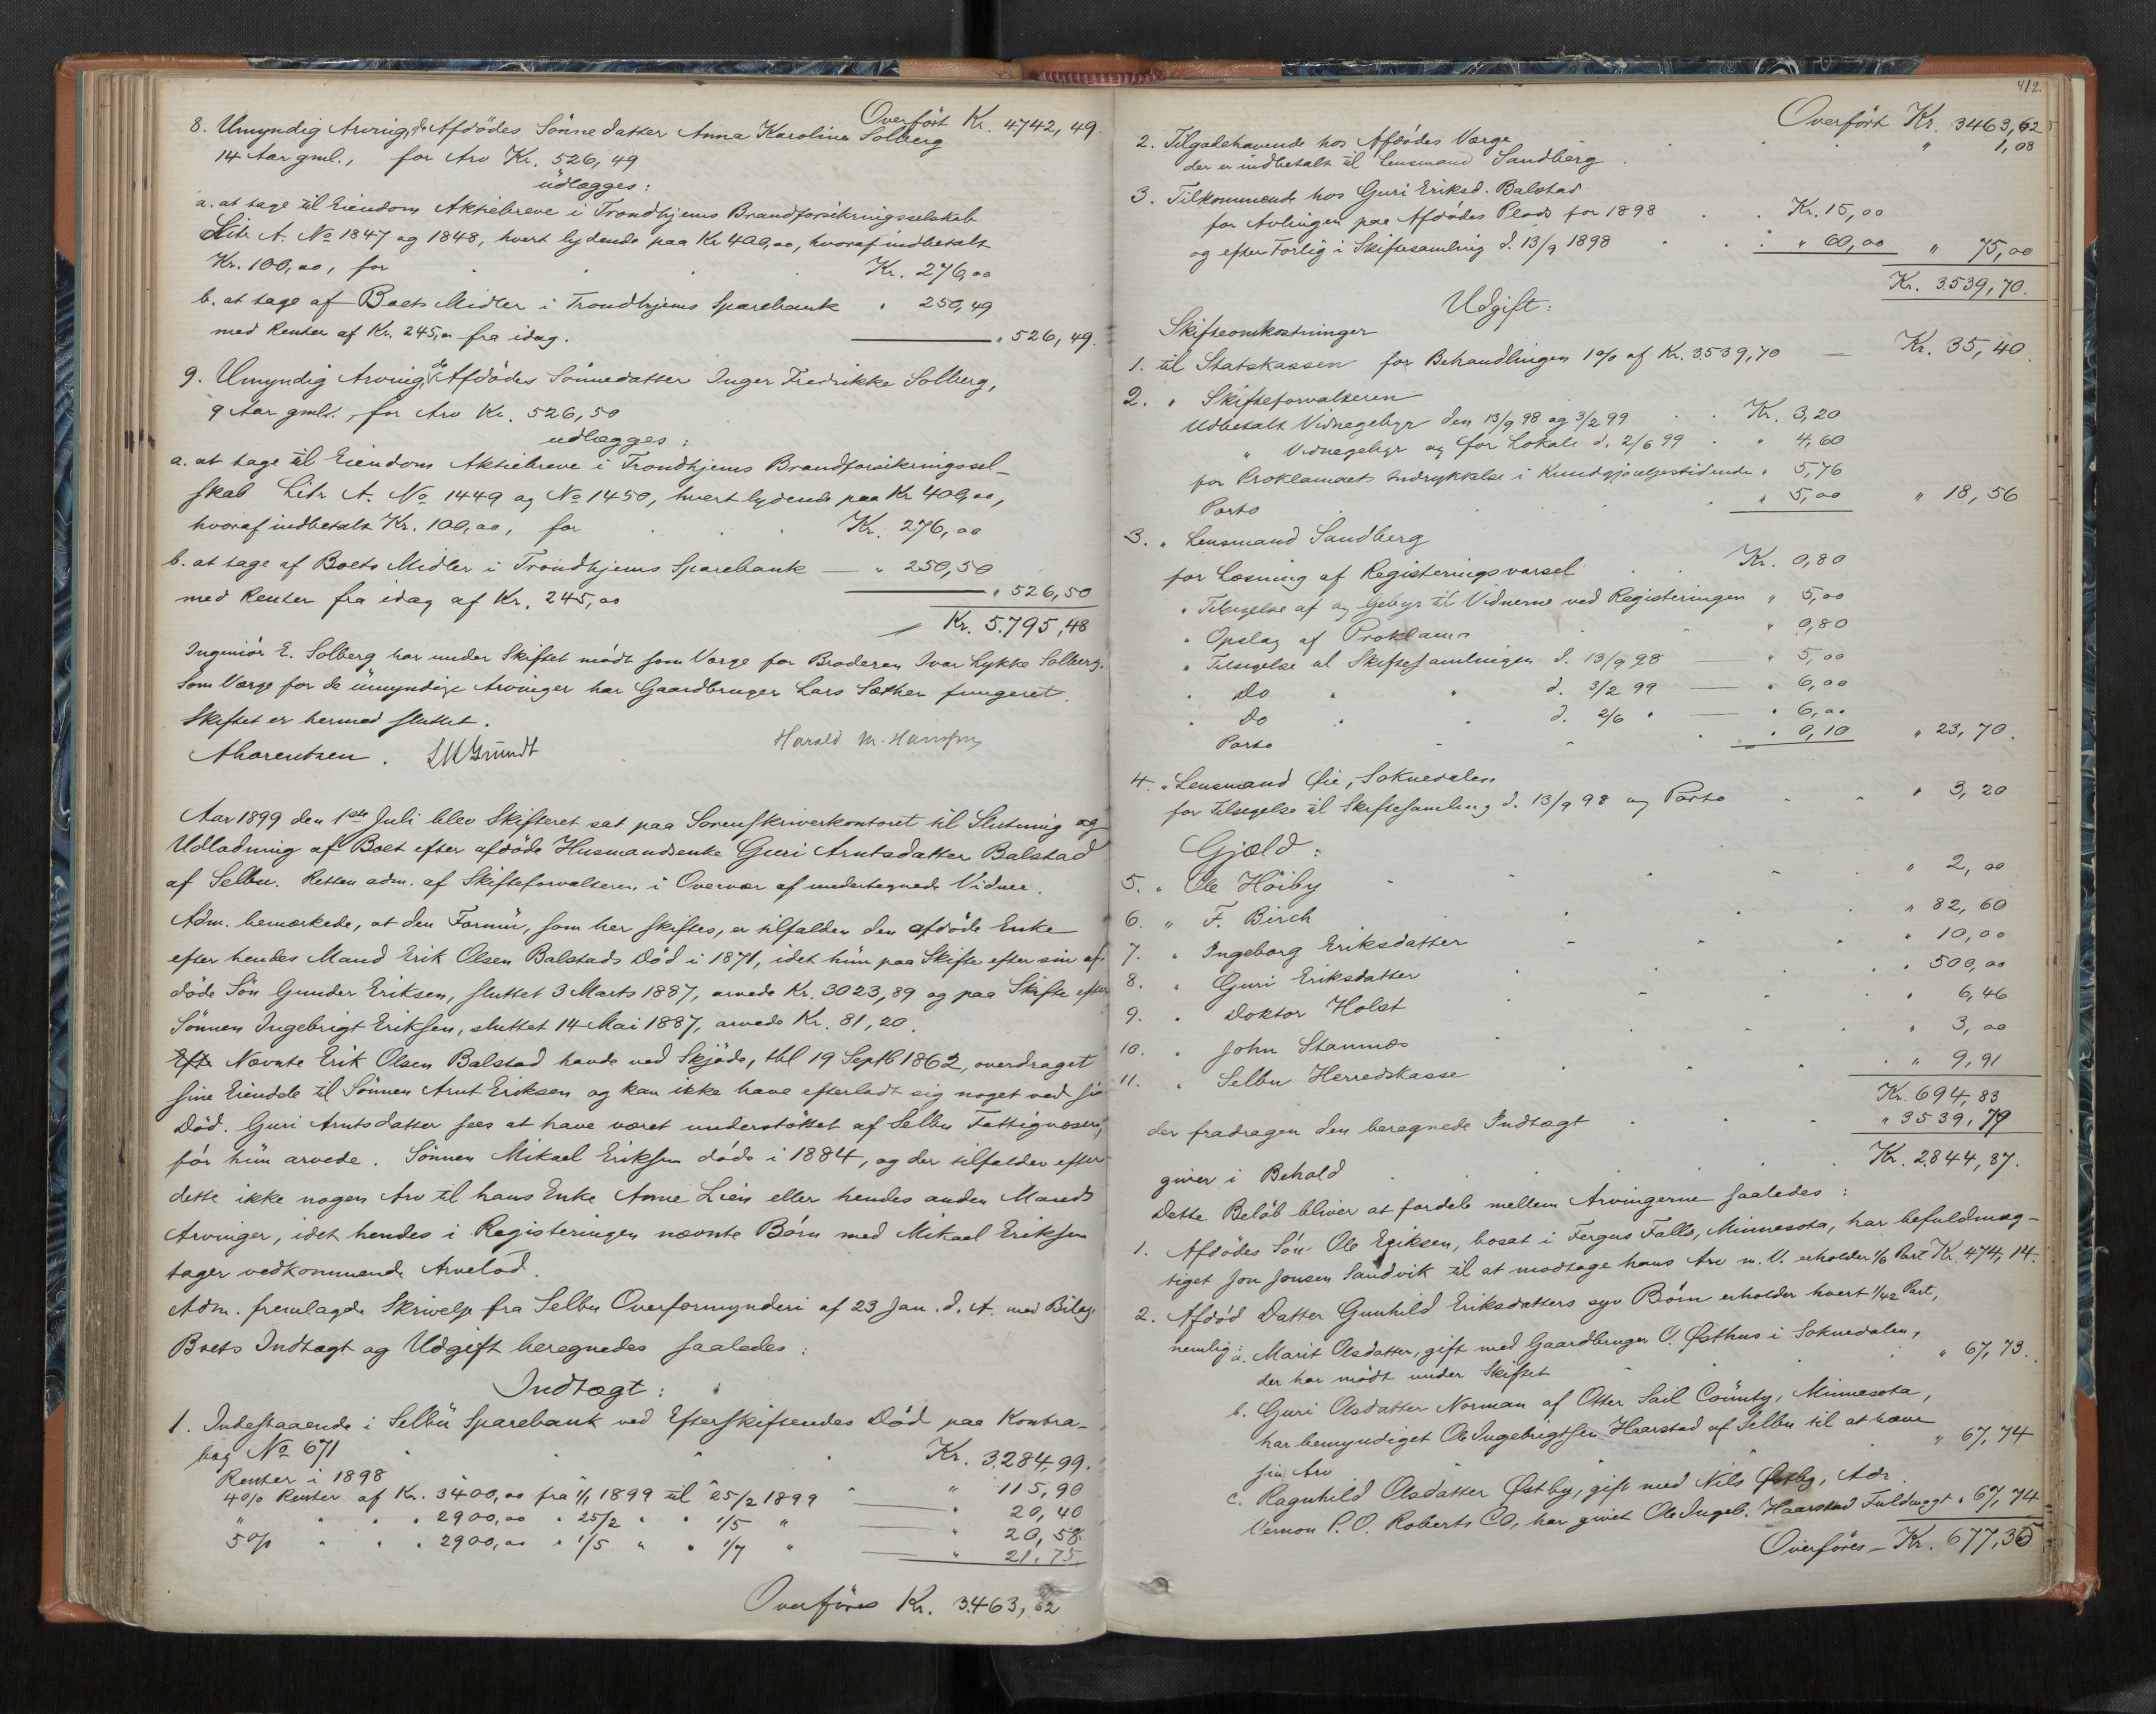 Overført Kr. 4742,49.
8. Umyndig Arving, Afdødes Sønnedatter Anna Karoline Solberg
14 Aar gml., for Arv Kr. 526,49
udlægges:
a. at tage til Eiendom Aktiebreve i Trondhjems Brandforsikringsselskab
Litr A. No 1847 og 1848, hvert lydende paa Kr 400,00, hvoraf indbetalt
Kr. 100,00, for . . . Kr. 276,00
b. at tage af Boets Midler i Trondhjems Sparebank " 250,49
med Renter af Kr. 245,00 fra idag. — " 526,49.
9. Umyndig Arving, de Afdødes Sønnedatter Inger Fredrikke Solberg,
9 Aar gml., for Arv Kr. 526,50
udlægges:
a. at tage til Eiendom Aktiebreve i Trondhjems Brandforsikringssel-
skab Litr A. No 1449 og No 1450, hvert lydende paa Kr 400,00,
hvoraf indbetalt Kr. 100,00, for . . . Kr. 276,00
b. at tage af Boets Midler i Trondhjems Sparebank — " 250,50
med Renter fra idag af Kr. 245,00 — " 526,50
Kr. 5.795,48
Ingeniør E. Solberg har under Skiftet mødt som Værge for Broderen Ivar Lykke Solberg.
Som Værge for de umyndige Arvinger har Gaardbruger Lars Sæther fungeret.
Skiftet er hermed sluttet.
A Lorentzen. Grundt Harald M. Hansen
Aar 1899 den 1ste Juli blev Skifteret sat paa Sorenskriverkontoret til Slutning og
Udlodning af Boet efter afdøde Husmandsenke Guri Arntsdatter Balstad
af Selbu. Retten adm. af Skifteforvalteren i Overvær af undertegnede Vidner.
Adm. bemærkede, at den Formue, som her skiftes, er tilfalden den afdøde Enke
efter hendes Mand Erik Olsen Balstads Død i 1871, idet hun paa Skifte efter sin af-
døde Søn Gunder Eriksen, sluttet 3 Marts 1887, arvede Kr. 3023,89 og paa Skifte efter
Sønnen Ingebrigt Eriksen, sluttet 14 Mai 1887, arvede Kr. 81,20.
Efte Nævnte Erik Olsen Balstad havde ved Skjøde, tbl 19 Septb 1862, overdraget
sine Eiendele til Sønnen Arnt Eriksen og kan ikke have efterladt sig noget ved sin
Død. Guri Arntsdatter sees at have været understøttet af Selbu Fattigvæsen,
før hun arvede. Sønnen Mikael Eriksen døde i 1884, og der tilfalder efter
dette ikke nogen Arv til hans Enke Anne Lien eller hendes anden Mands
Arvinger, idet hendes i Registeringen nævnte Børn med Mikael Eriksen
tager vedkommende Arvelod.
Adm. fremlagde Skrivelse fra Selbu Overformynderi af 23 Jan. d. A. med Bilag
Boets Indtægt og Udgift beregnedes saaledes:
Indtægt:
1. Indestaaende i Selbu Sparebank ved Efterskiftendes Død paa Kontra-
bog No 671 . . . Kr. 3.284,99.
Renter i 1898 " 115,90
4 % Renter af Kr. 3400,00 fra 1/1 1899 til 25/2 1899 " 20,40
" " " " 2900,00 " 25/2 " " 1/5 " — " 20,58.
5 % " " " 2900,00 " 1/5 " " 1/7 " — " 21.75
Overføres Kr. 3.463,62
412.
Overført Kr. 3463,62
2. Tilgodehavende hos Afdødes Værge
der er indbetalt til Lensmand Sandberg . . . " 1,08
3. Tilkommende hos Guri Eriksd. Balstad
for Avlingen paa Afdødes Plads for 1898 . . Kr. 15,00
og efter Forlig i Skiftesamling d. 13/9 1898 . . " 60,00 " 75,00
Kr. 3.539,70.
Udgift:
Skifteomkostninger
1. til Statskassen for Behandlingen 1 % af Kr. 3.539,70 — Kr. 35,40
2. " Skifteforvalteren
Udbetalt Vidnegebyr den 13/9 98 og 3/2 99 . . Kr. 3,20
" Vidnegebyr og for Lokale d. 2/6 99 . " 4,60
for Proklamaets Indrykkelse i Kundgjørelsestidende " 5,76
Porto . " 5,00 " 18,56
3. " Lensmand Sandberg
for Læsning af Registeringsvarsel . . Kr. 0,80
" Tilsigelse af og Gebyr til Vidnerne ved Registeringen " 5,00
" Opslag af Proklama " 0,80
" Tilsigelse til Skiftesamlingen d. 13/9 98 — " 5,00
" Do " " d. 3/2 99 — " 6,00
" Do " " d. 2/6 " — " 6,00
Porto . " 0,10 " 23,70.
4. " Lensmand Øie, Soknedalen
for Tilsigelse til Skiftesamling d. 13/9 98 og Porto . . " 3,20
Gjæld:
5. " Ole Høiby " 2,00
6. " F. Birch " 82,60
7. " Ingeborg Eriksdatter " 10,00
8. " Guri Eriksdatter " 500,00
9. " Doktor Holst " 6,46
10. " John Stamnæs " 3,00
11. " Selbu Herredskasse " 9,91
Kr. 694,83
der fradragen den beregnede Indtægt . . " 3539,79
giver i Behold . . . Kr. 2.844,87.
Dette Beløb bliver at fordele mellem Arvingerne saaledes:
1. Afdødes Søn Ole Eriksen, bosat i Fergus Falls, Minnesota, har befuldmæg-
tiget Jon Jonsen Sandvik til at modtage hans Arv m. V. erholder 1/6 Part Kr. 474,14.
2. Afdød Datter Gunhild Eriksdatters syv Børn erholder hvert 1/42 Part,
nemlig: a. Marit Olsdatter, gift med Gaardbruger O. Østhus i Soknedalen,
der har mødt under Skiftet " 67,73.
b. Guri Olsdatter Norman af Otter Tail County, Minnesota,
har bemyndiget Ole Ingebrigtsen Haarstad af Selbu til at hæve
sin Arv " 67,74
c. Ragnhild Olsdatter Østby, gift med Nils Østby, Adr.
Vernon P.O. Roberts Co, har givet Ole Ingeb. Haarstad Fuldmagt " 67,74
Overføres — Kr. 677,35